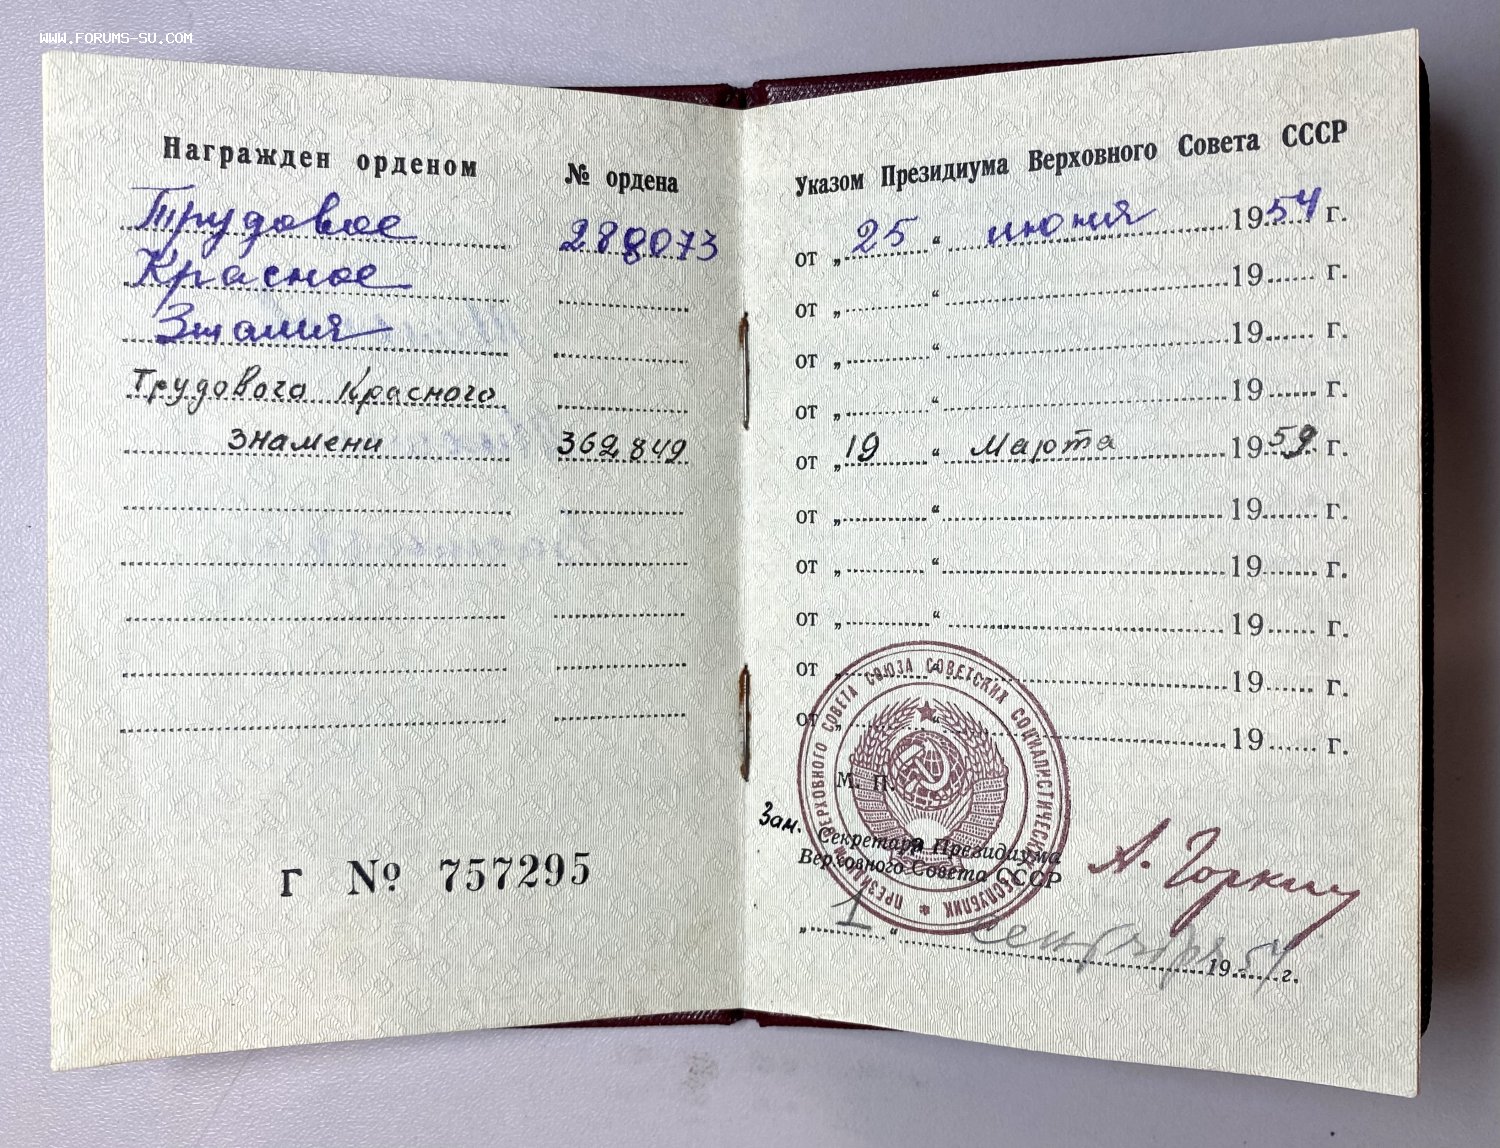 WWW.FORUMS-SU.COM
Награжден орденом № ордена
Трудовое 288073
Красное
Знамя
Трудового Красного
знамени 362849
Г № 757295
Указом Президиума Верховного Совета СССР
от „ 25 “ июня 1954 г.
от „ “ 19 г.
от „ “ 19 г.
от „ “ 19 г.
от „ 19 “ Марта 1959 г.
от „ “ 19 г.
от „ “ 19 г.
от „ “ 19 г.
от „ “ 19 г.
от „ “ 19 г.
ПРЕЗИДИУМ ВЕРХОВНОГО СОВЕТА СОЮЗА СОВЕТСКИХ СОЦИАЛИСТИЧЕСКИХ РЕСПУБЛИК
М. П.
Зам. Секретаря Президиума
Верховного Совета СССР
А. Горкин
„ 1 “ сентября 1954 г.